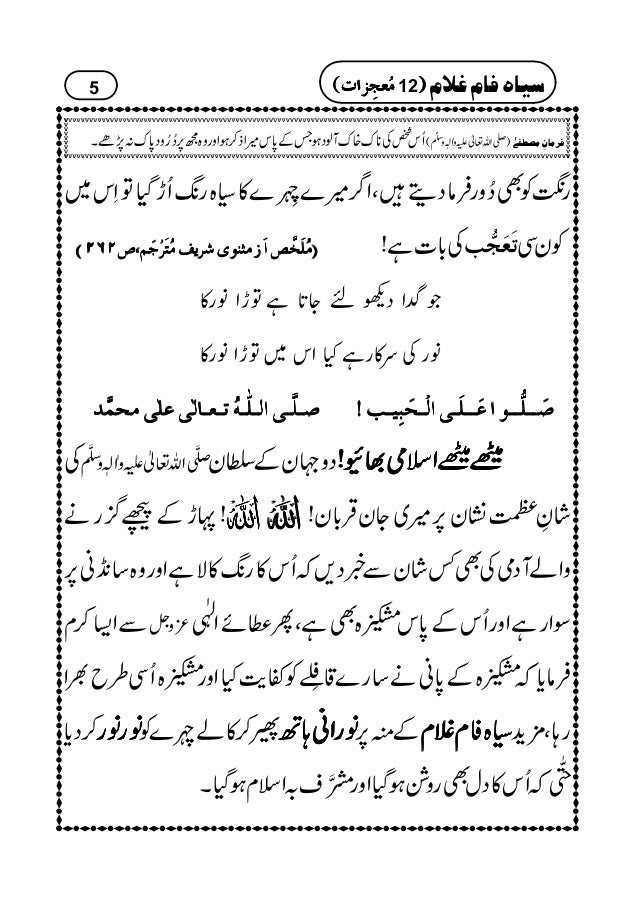 سیاہ فام غلام (12 مُعجِزات)
5
فرمانِ مصطفےٰ (صلی اللہ تعالیٰ علیہ والہ وسلّم) اُس شخص کی ناک خاک آلود ہو جس کے پاس میرا ذکر ہو اور وہ مجھ پر دُرُود پاک نہ پڑھے۔
رنگت کو بھی دُور فرما دیتے ہیں، اگر میرے چِہرے کا سیاہ رنگ اُڑ گیا تو اِس میں
کون سی تَعَجُّب کی بات ہے! (مُلَخَّص اَز مثنوی شریف مُتَرجَم،ص۲۶۲)
جو گدا دیکھو لئے جاتا ہے توڑا نور کا
نور کی سرکار ہے کیا اس میں توڑا نور کا
صَلُّوا عَلَی الْحَبِیب! صلَّی اللّٰہُ تعالٰی علٰی محمَّد
میٹھے میٹھے اسلامی بھائیو! دو جہان کے سلطان صلَّی اللہ تعالیٰ علیہ والہٖ وسلَّم کی
شانِ عظمت نشان پر میری جان قربان! اَللہُ اَللہُ! پہاڑ کے پیچھے گزرنے
والے آدمی کی بھی کس شان سے خبر دیں کہ اُس کا رنگ کالا ہے اور وہ سانڈنی پر
سوار ہے اور اُس کے پاس مشکیزہ بھی ہے، پھر عطائے الٰہی عزوجل سے ایسا کرم
فرمایا کہ مشکیزہ کے پانی نے سارے قافِلے کو کفایت کیا اور مشکیزہ اُسی طرح بھرا
رہا، مزید سیاہ فام غلام کے منہ پر نورانی ہاتھ پھیر کر کالے چہرے کو نور نور کر دیا
حتّٰی کہ اُس کا دل بھی روشن ہو گیا اور مشرَّف بہ اسلام ہو گیا۔